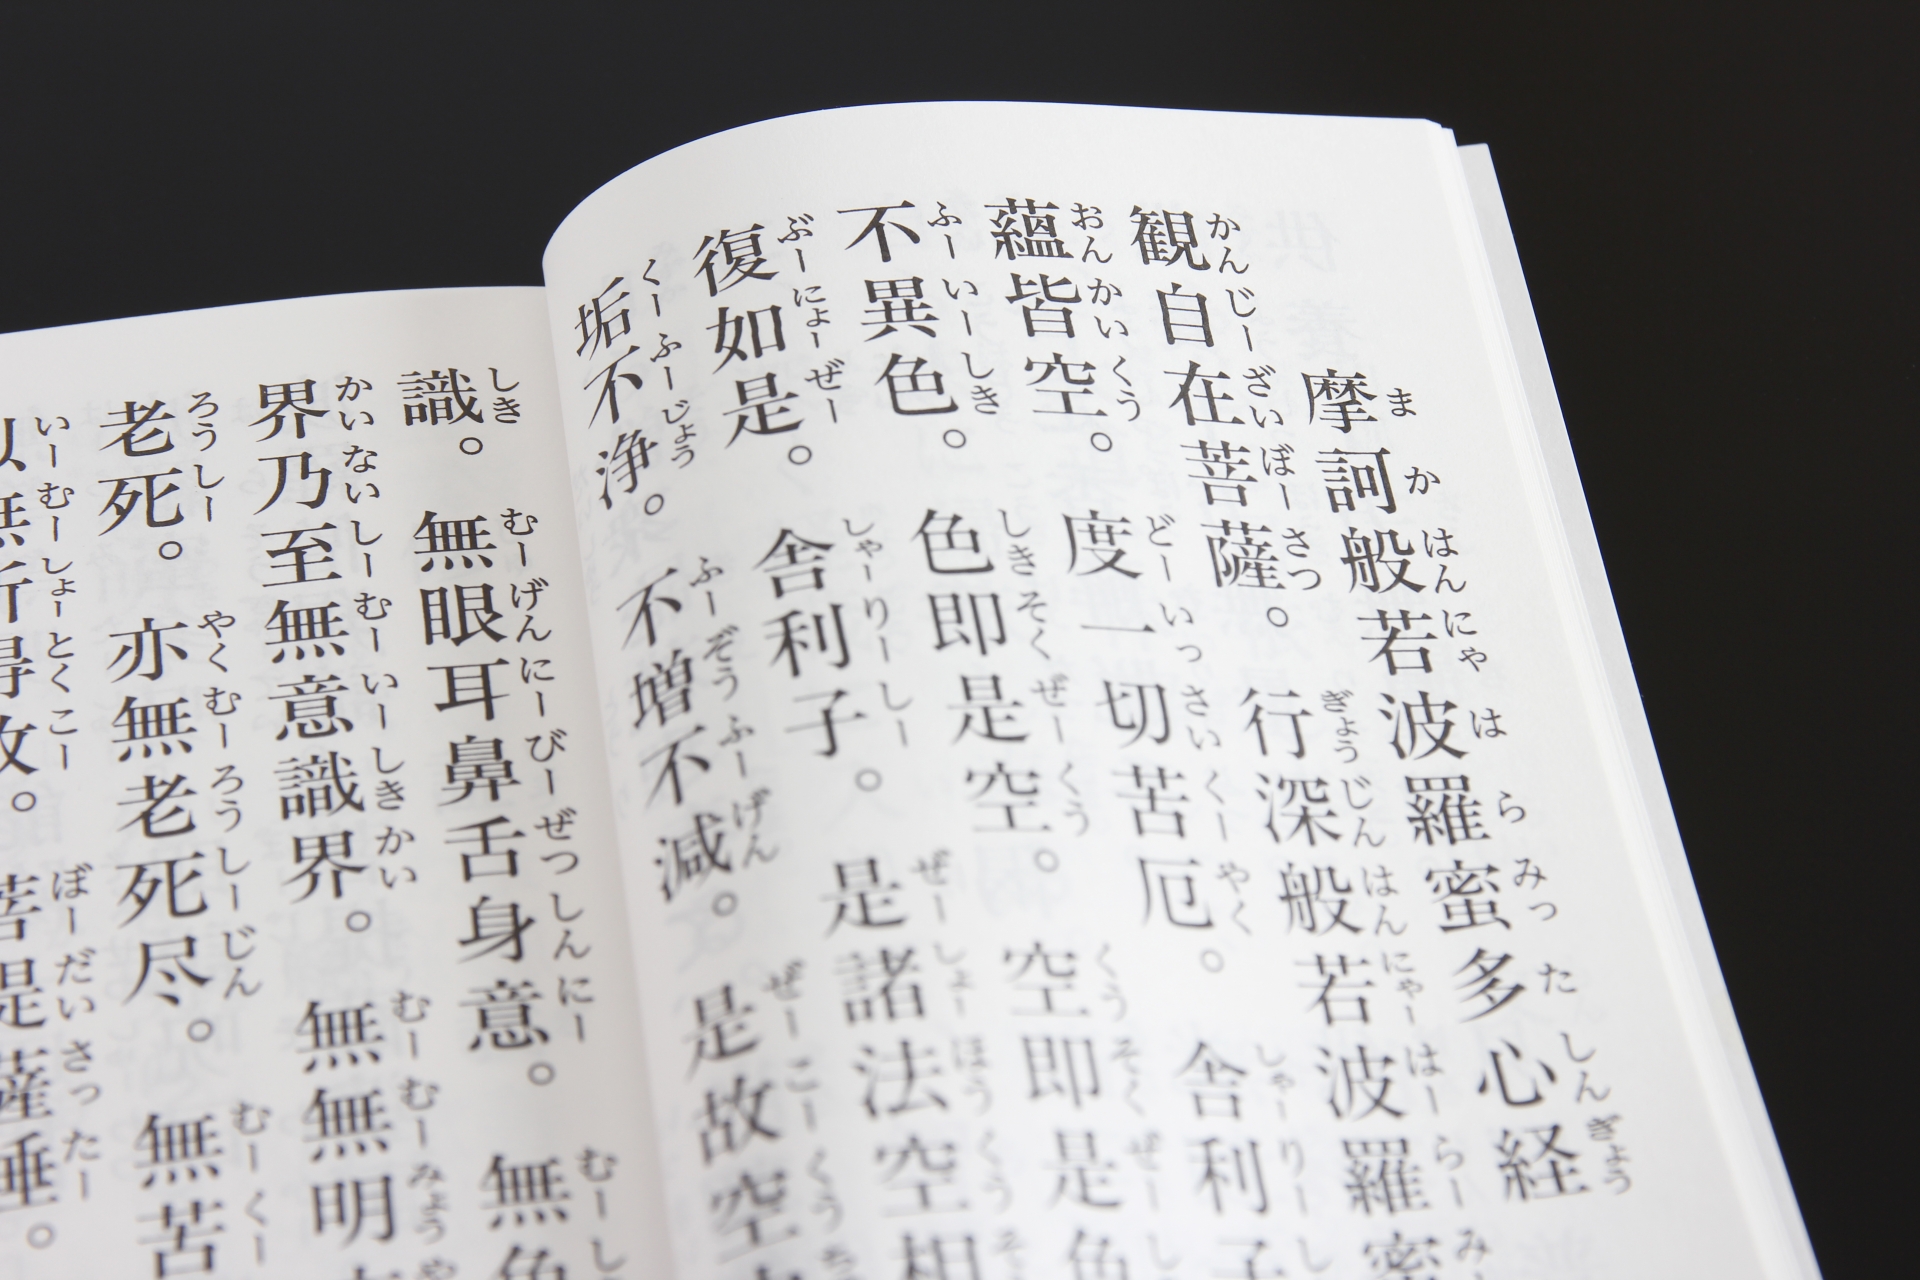 摩訶般若波羅蜜多心経
観自在菩薩。 行深般若波羅蜜
蘊皆空。 度一切苦厄。 舎利子
不異色。 色即是空。 空即是色
復如是。 舎利子。 是諸法空相
垢不浄。 不増不減。 是故空
識。 無眼耳鼻舌身意。 無色
界乃至無意識界。 無無明
老死。 亦無老死尽。 無苦
以無所得故。 菩提薩埵。